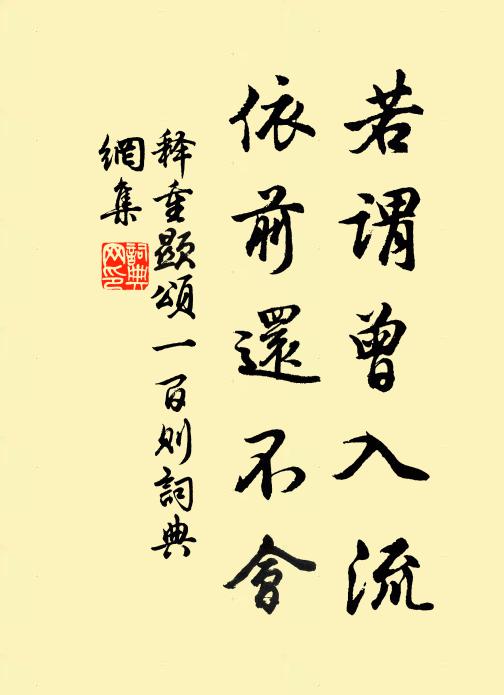 若謂曾入流
依前還不會
釋重顯頌一百則詞典
網集
詞典
网印